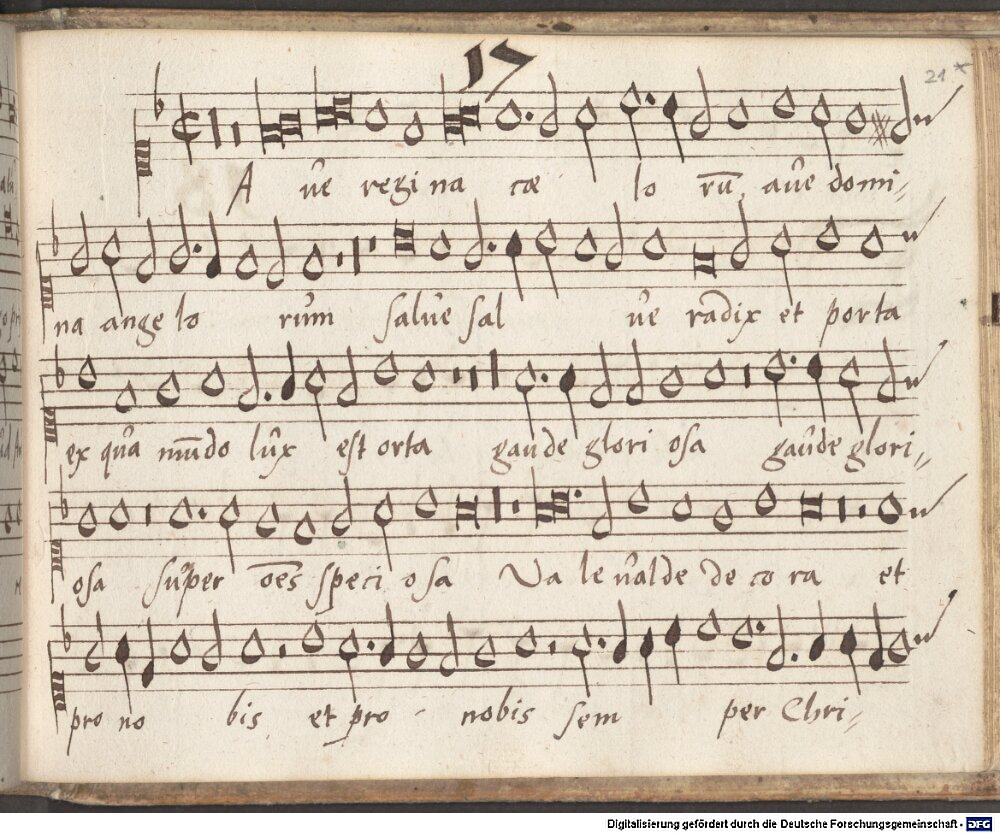 17
21 *
A ve regi na cæ lo rũ, ave domi,,
na ange lo rum salve sal ve radix et porta
ex qua mũdo lux est orta gaude glori osa gaude glori,,
osa super oẽs speci osa Va le valde de co ra et
pro no bis et pro nobis sem per Chri,,
Digitalisierung gefördert durch die Deutsche Forschungsgemeinschaft - DFG